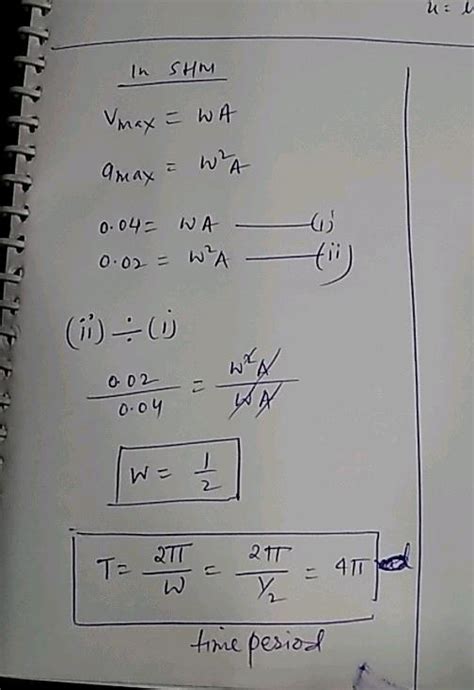 u=
In SHM
Vmax = WA
amax = W²A
0.04 = WA —— (i)
0.02 = W²A —— (ii)
(ii) ÷ (i)
0.02/0.04 = W²A/WA
W = 1/2
T = 2π/W = 2π/1/2 = 4π
time period